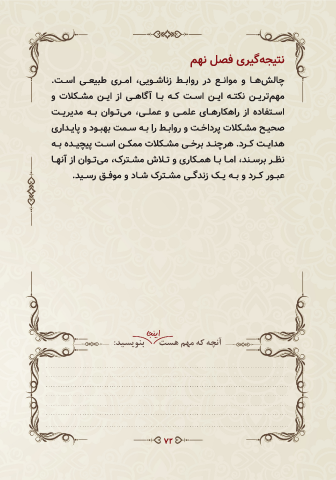 نتیجه‌گیری فصل نهم
چالش‌ها و موانع در روابط زناشویی، امری طبیعی است.
مهم‌ترین نکته این است که با آگاهی از این مشکلات و
استفاده از راهکارهای علمی و عملی، می‌توان به مدیریت
صحیح مشکلات پرداخت و روابط را به سمت بهبود و پایداری
هدایت کرد. هرچند برخی مشکلات ممکن است پیچیده به
نظر برسند، اما با همکاری و تلاش مشترک، می‌توان از آنها
عبور کرد و به یک زندگی مشترک شاد و موفق رسید.
آنچه که مهم هست اینجا بنویسید:
۷۲